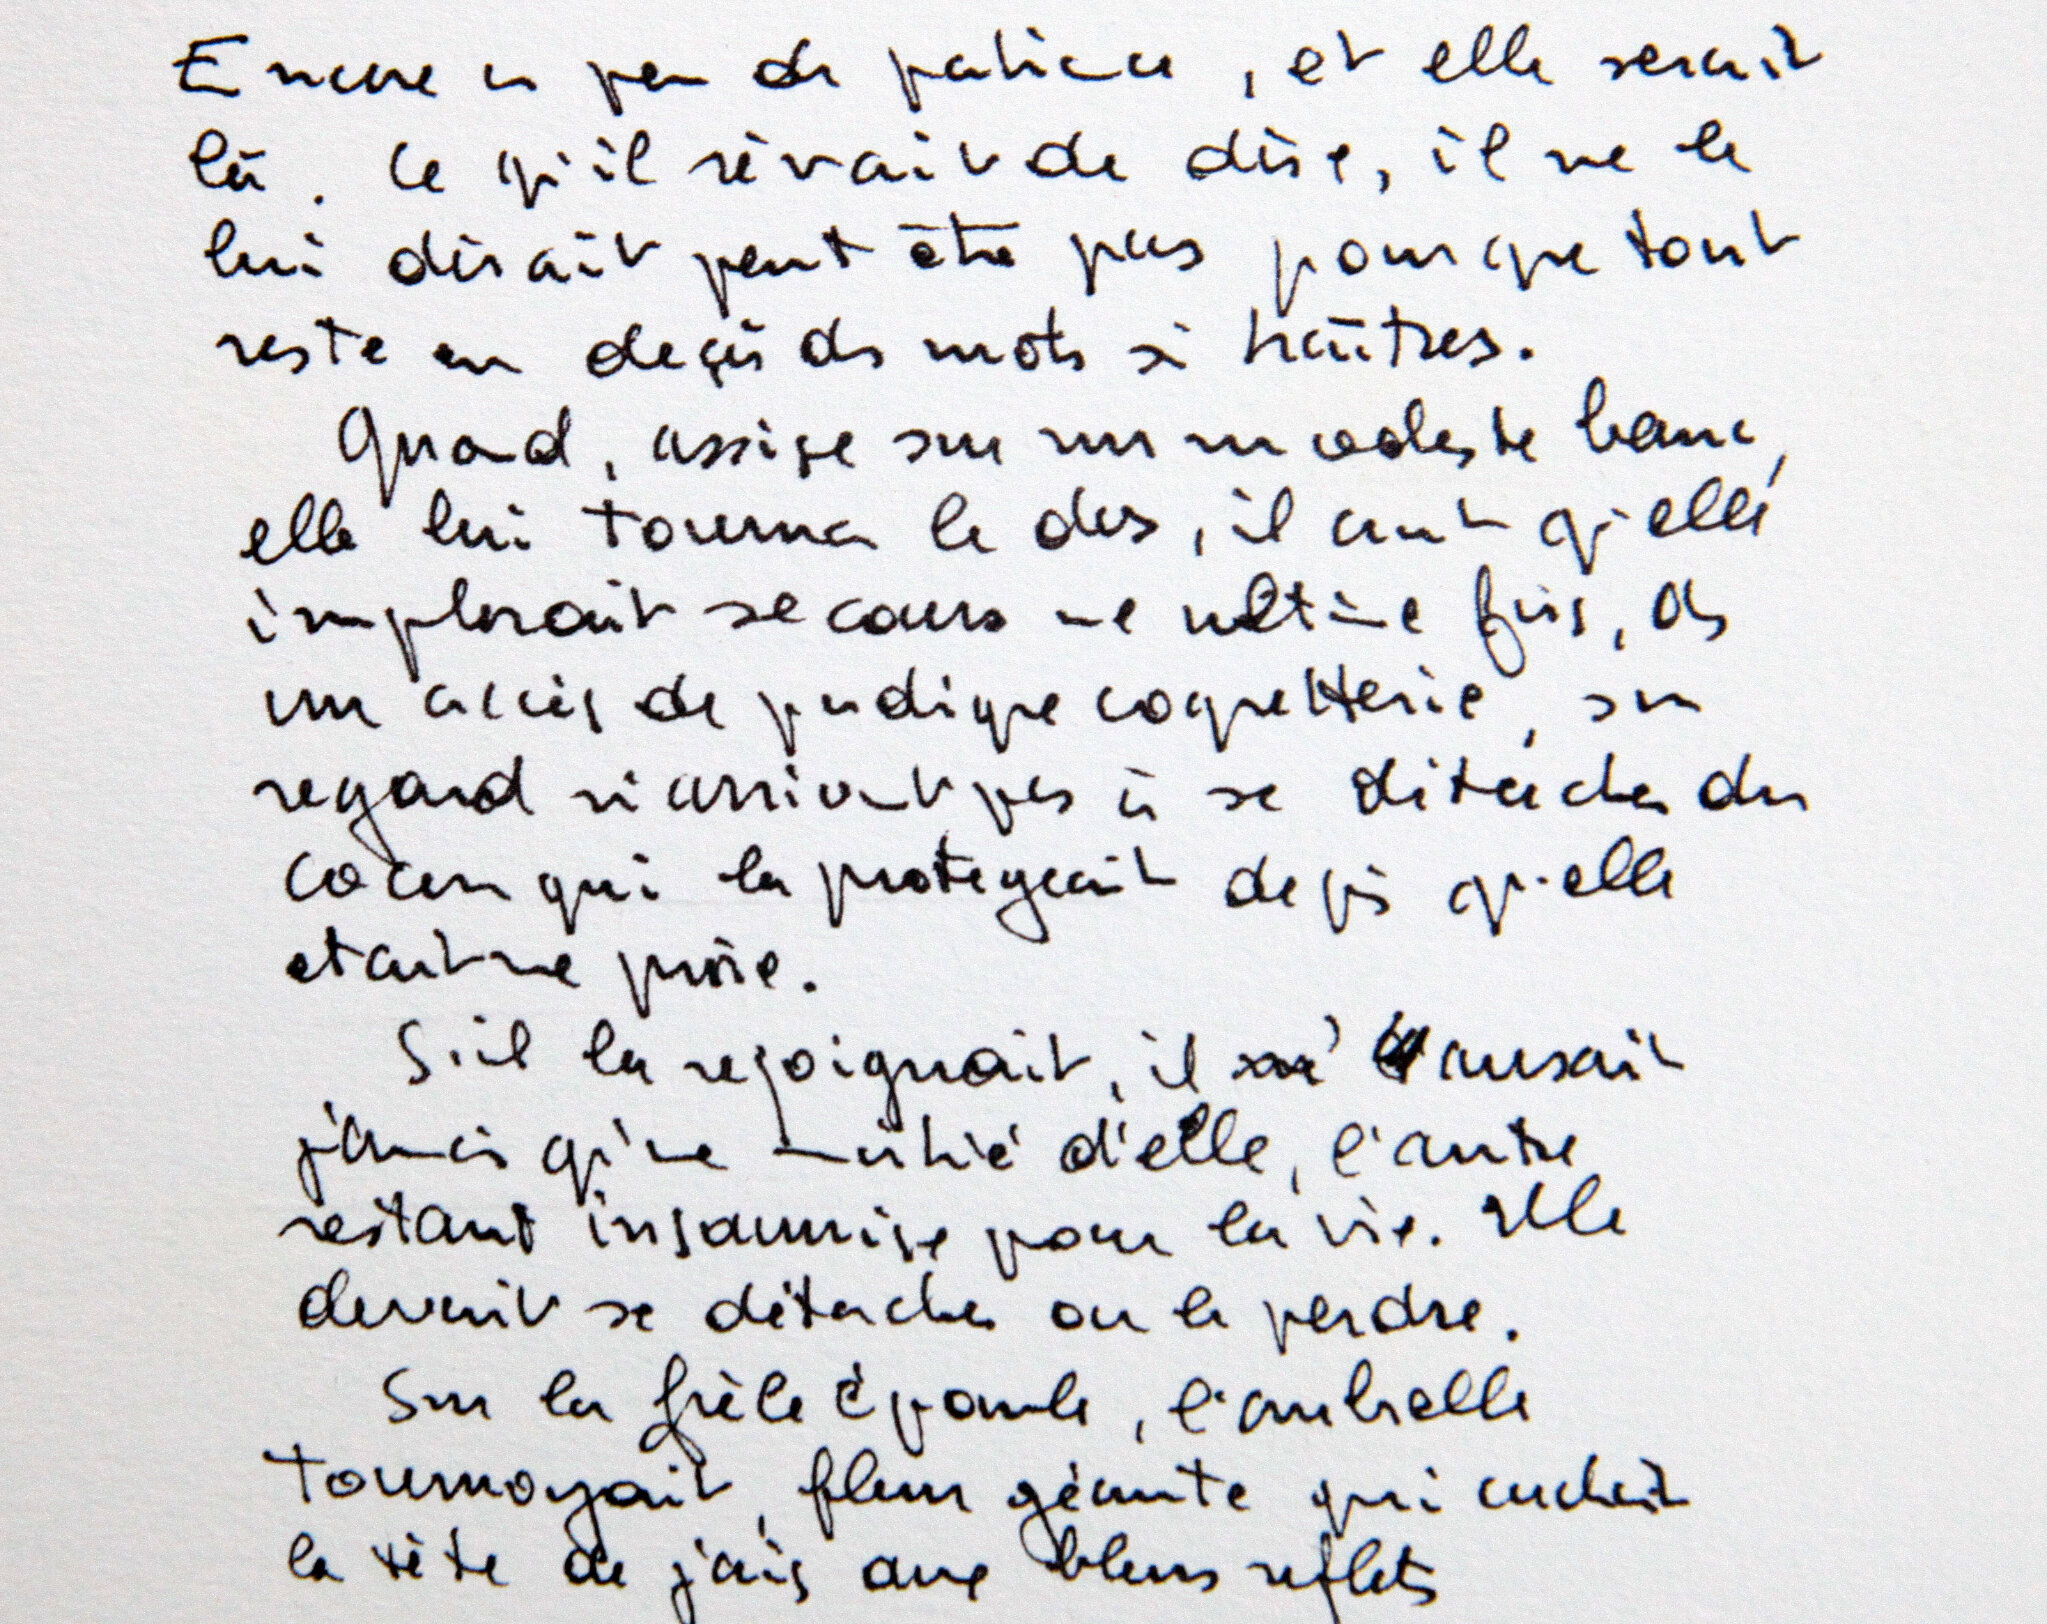 Encore un peu de patience, et elle serait
là. Ce qu'il rêvait de dire, il ne le
lui dirait peut être pas pour que tout
reste en deçà des mots si traîtres.
Quand, assise sur un modeste banc,
elle lui tourna le dos, il crut qu'elle
implorait secours une ultime fois, ds
un accès de pudique coquetterie, son
regard n'arrivant pas à se détacher du
cocon qui la protégeait depuis qu'elle
était une proie.
S'il la rejoignait, il n' aurait
jamais qu'une moitié d'elle, l'autre
restant insoumise pour la vie. Elle
devait se détacher ou le perdre.
Sur la frêle épaule, l'ombrelle
tournoyait, fleur géante qui cachait
la tête de jais aux bleus reflets